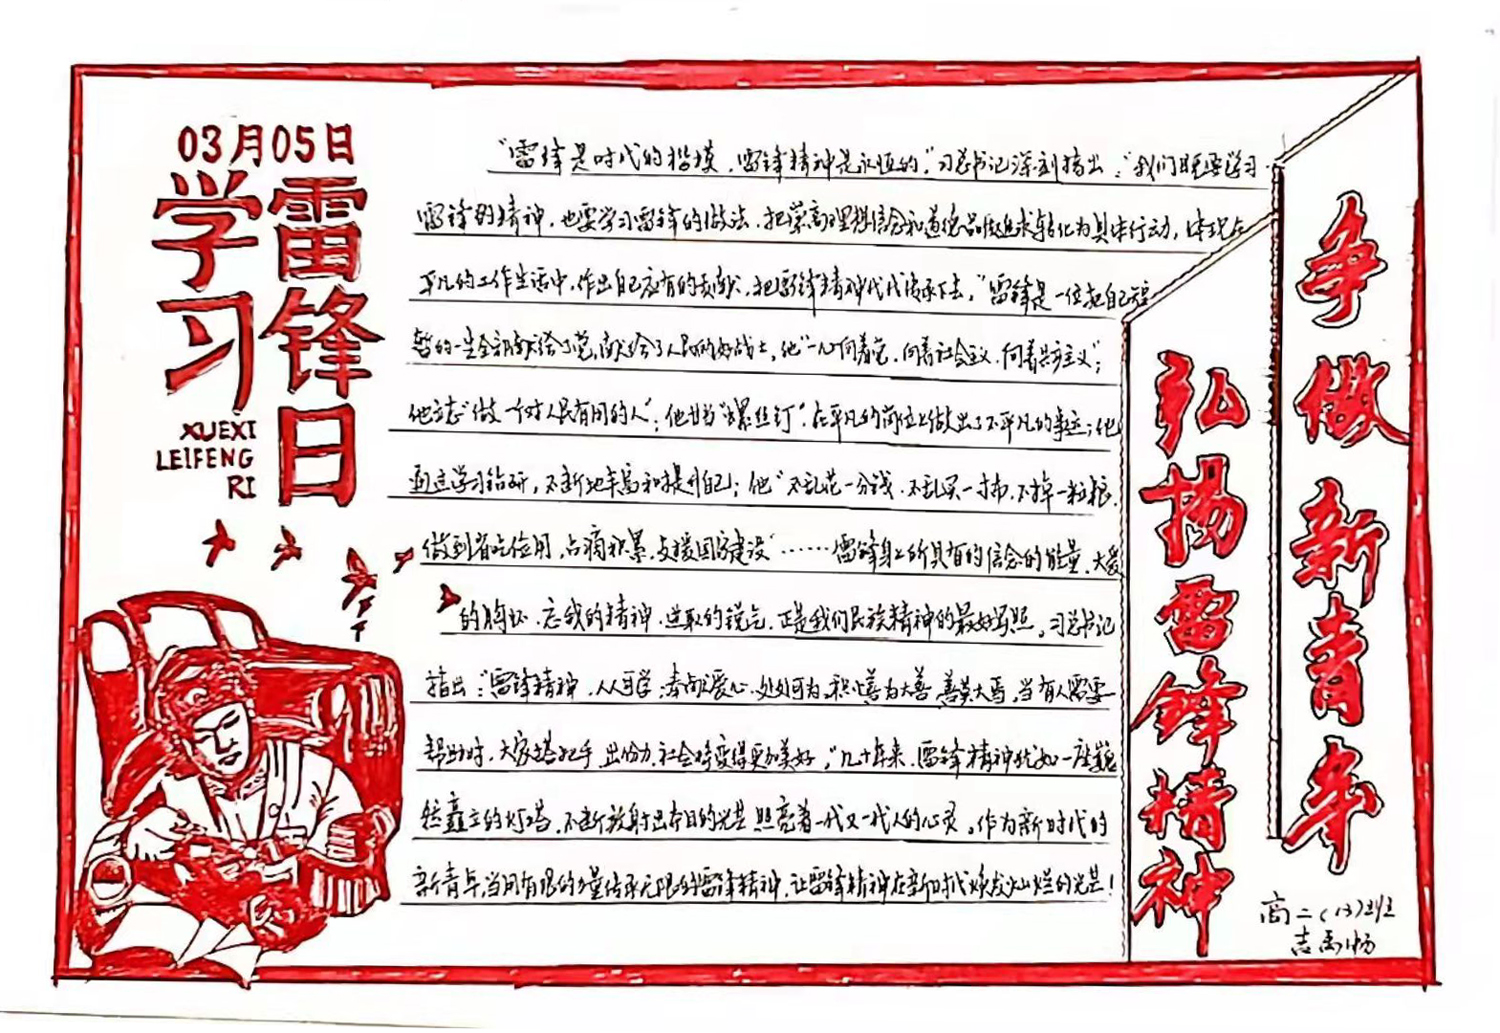 03月05日
学习
雷锋日
XUEXI
LEIFENG
RI
“雷锋是时代的楷模,雷锋精神是永恒的。”习总书记深刻指出:“我们既要学习
雷锋的精神,也要学习雷锋的做法,把崇高理想信念和道德品质追求转化为具体行动,体现在
平凡的工作生活中,作出自己应有的贡献,把雷锋精神代代传承下去。”雷锋是一位把自己短
暂的一生全部献给了党,献给了人民的好战士,他“一心向着党,向着社会主义,向着共产主义”;
他立志“做一个对人民有用的人”;他甘当“螺丝钉”,在平凡的岗位上做出了不平凡的事迹;他
通过学习钻研,不断地丰富和提升自己;他“不乱花一分钱,不乱买一寸布,不掉一粒粮,
做到省吃俭用,点滴积累,支援国家建设”……雷锋身上所具有的信念的能量,大爱
的胸怀,忘我的精神,进取的锐气,正是我们民族精神的最好写照。习总书记
指出:“雷锋精神,人人可学;奉献爱心,处处可为。积小善为大善,善莫大焉。当有人需要
帮助时,大家搭把手,出份力,社会将变得更加美好。”几十年来,雷锋精神犹如一座巍
然矗立的灯塔,不断放射出夺目的光芒,照亮着一代又一代人的心灵。作为新时代的
新青年,当用有限的力量传承无限的雷锋精神,让雷锋精神在新时代焕发灿烂的光芒!
弘扬雷锋精神
争做新青年
高二(13)班